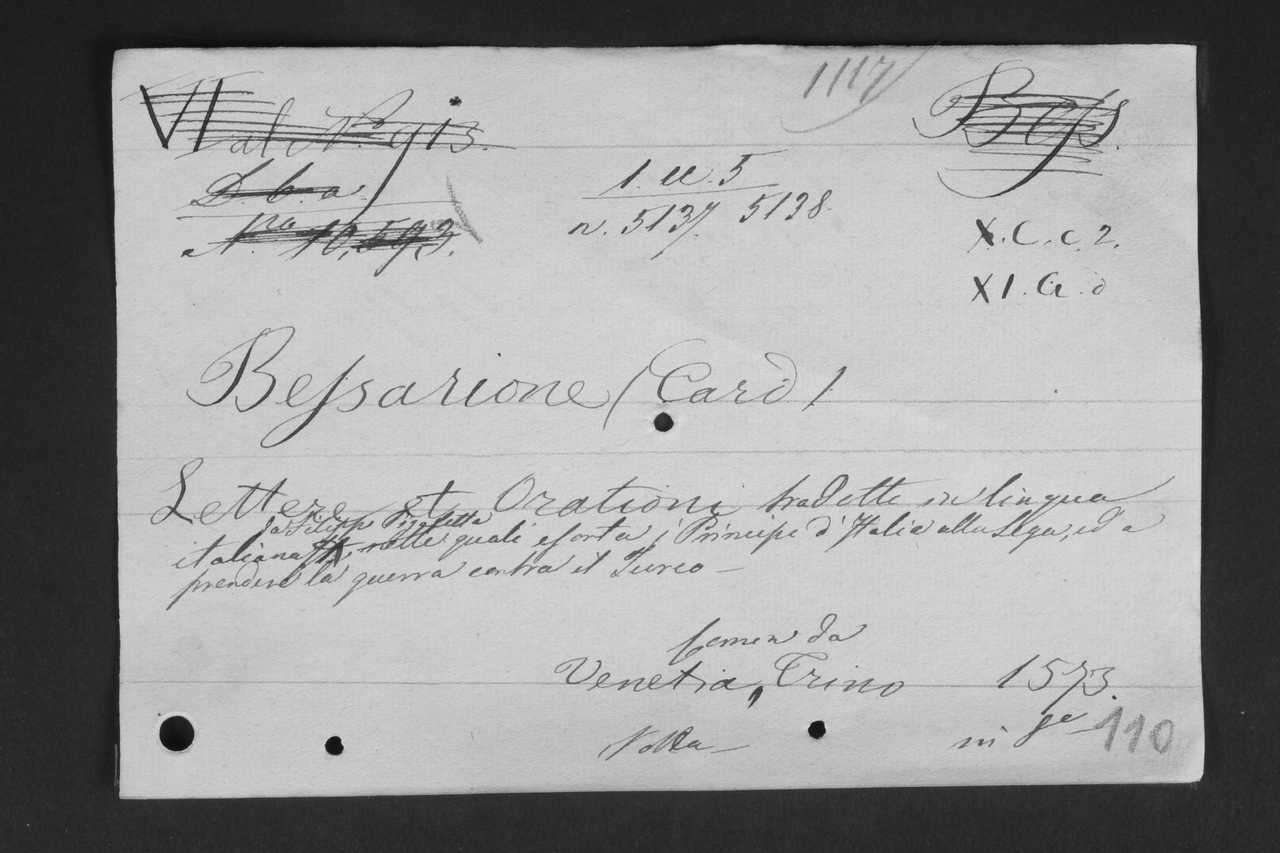 1117
VI
Val N.º 913.
Bess.
D. b. a.
1. ee. 5
Nro 10,593.
n. 5137. 5138
X. C. c. 2.
X I. a. d
Bessarione (Card)
Lettere et Orationi tradotte in lingua
da Filippo Pigafetta
italiana, nelle quali esorta i Principi d'Italia alla Lega, ed a
prendere la guerra contra il Turco —
Comin da
Venetia, Trino 1573.
in 4e 110